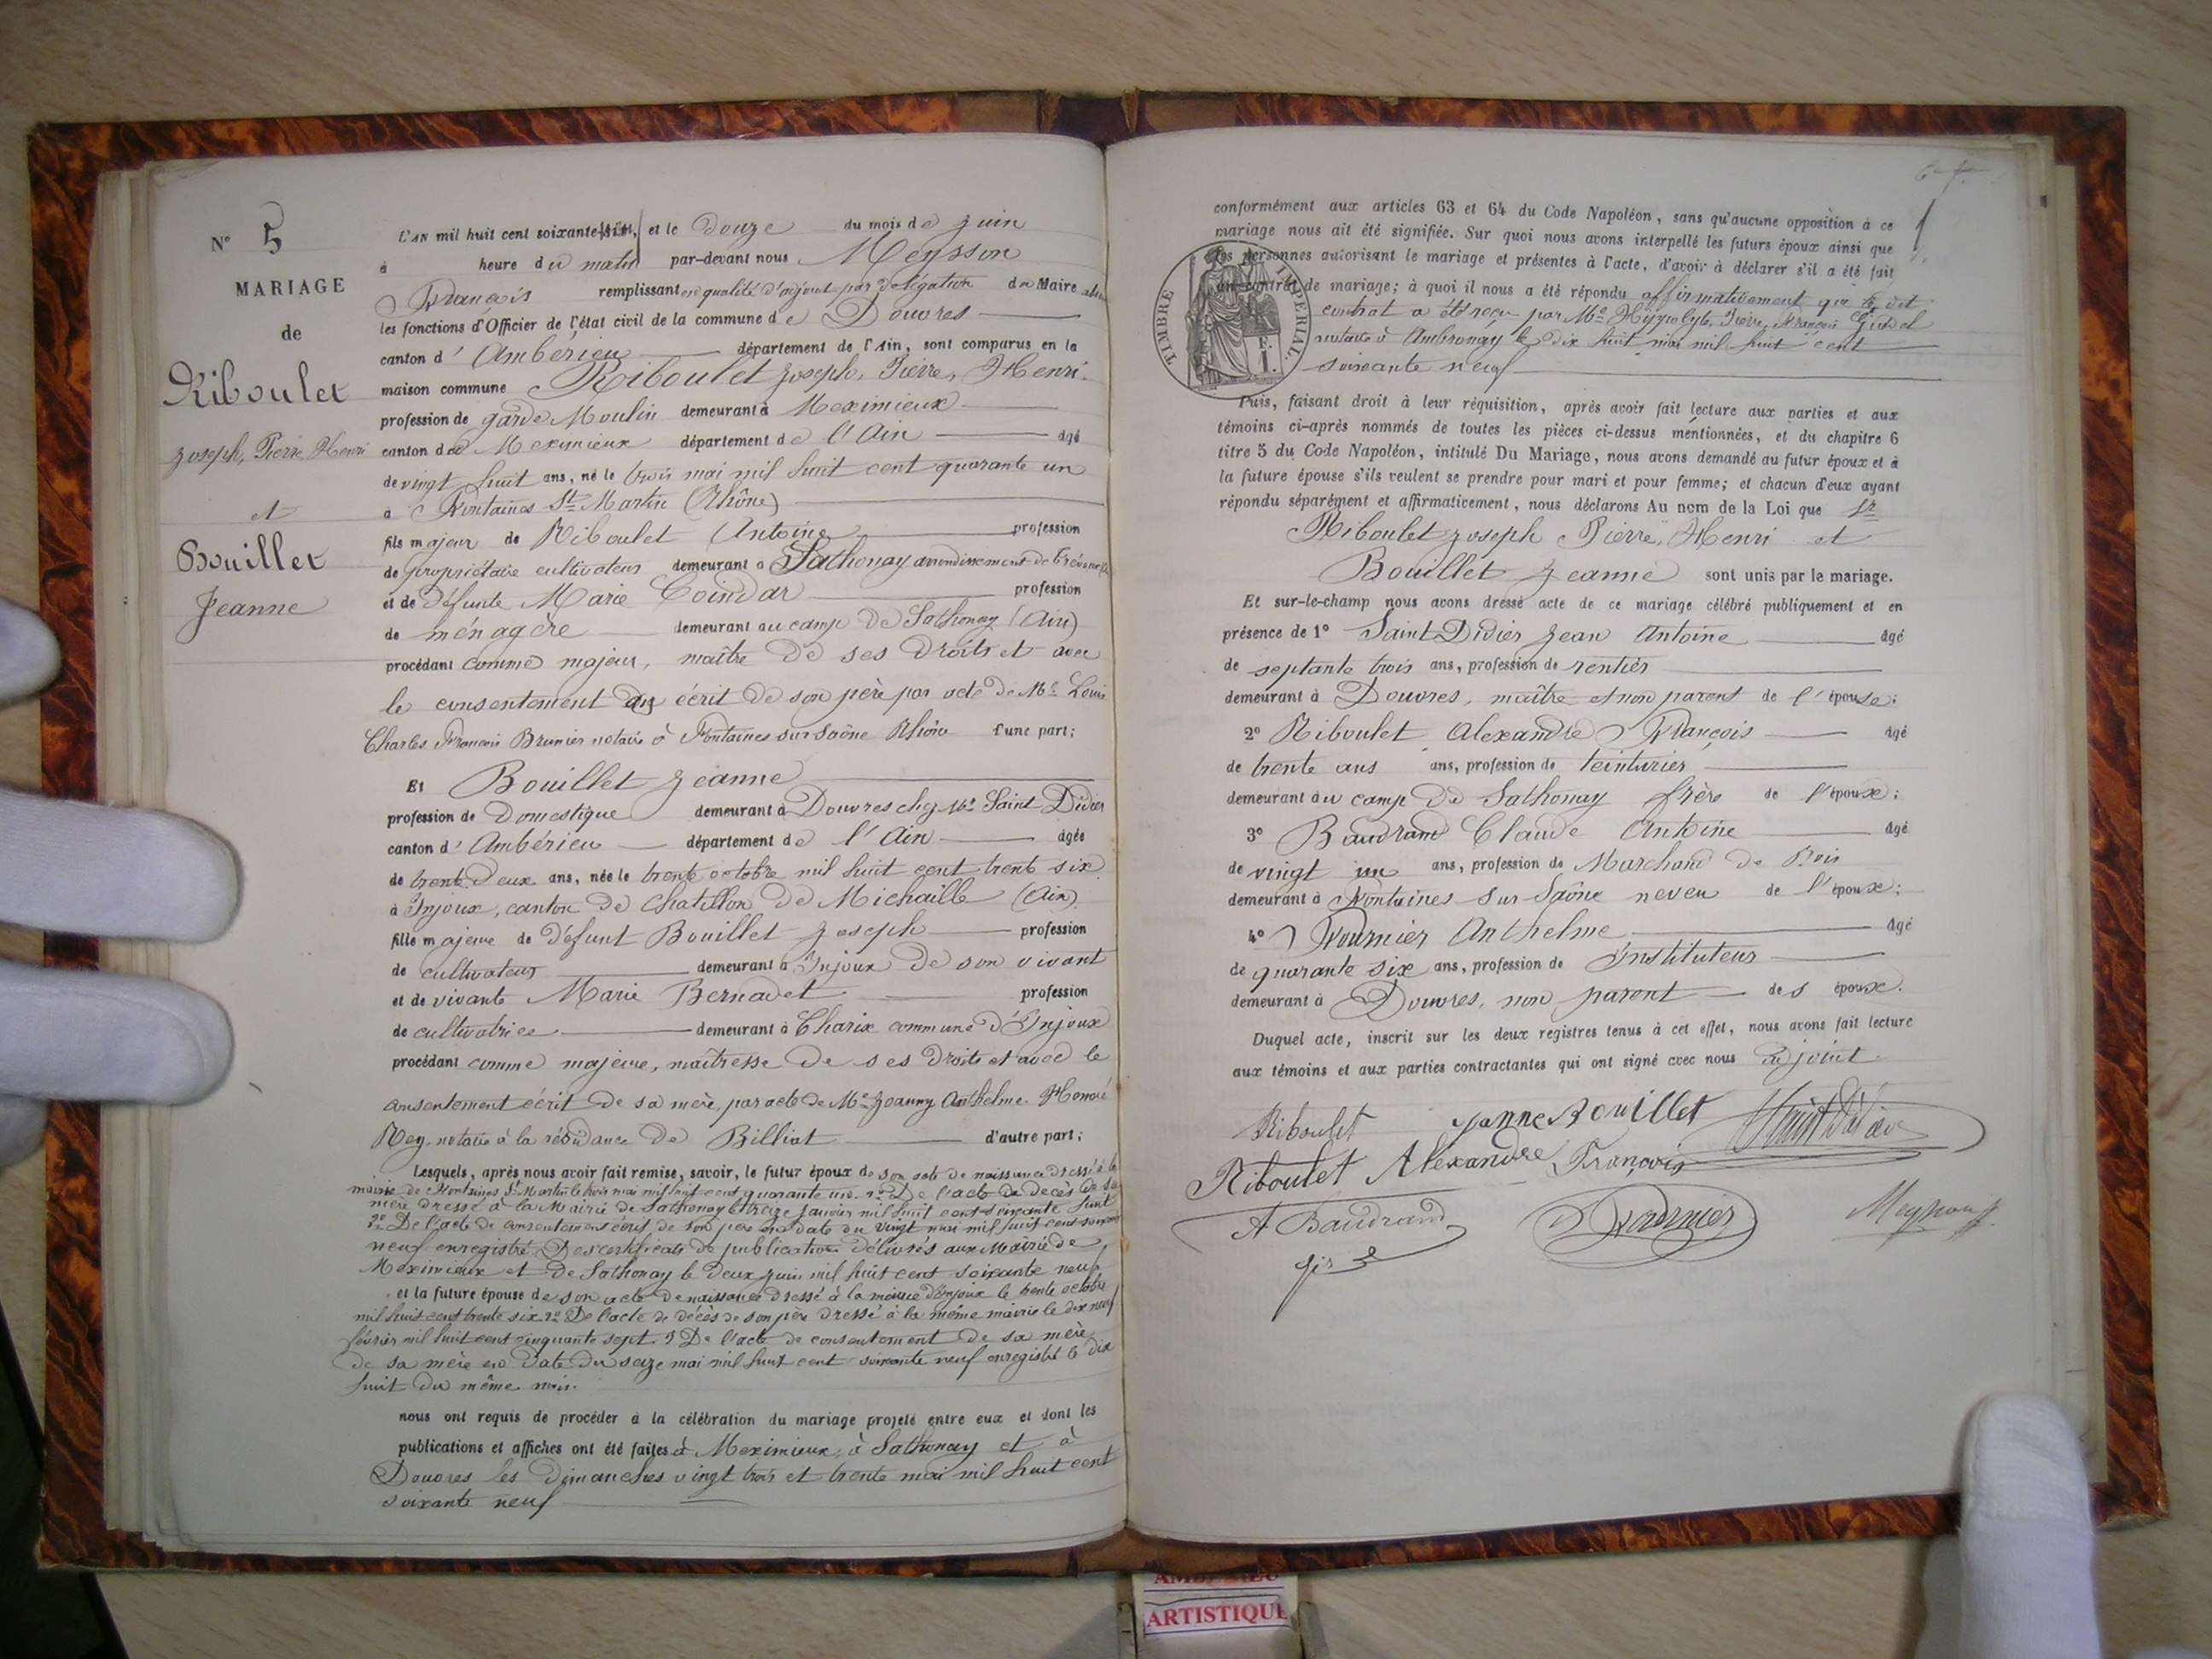 N° 5
MARIAGE
de
Riboulet
Joseph, Pierre Henri
et
Bouillet
Jeanne
L'AN mil huit cent soixante et le Douze du mois de Juin
à heure du matin par-devant nous Meysson
François remplissant en qualité d'adjoint par délégation du Maire
les fonctions d'Officier de l'état civil de la commune de Douvres
canton d'Ambérieu département de l'Ain, sont comparus en la
maison commune Riboulet Joseph, Pierre, Henri
profession de garde Moulin demeurant à Meximieux
canton de Meximieux département de l'Ain âgé
de vingt huit ans, né le trois mai mil huit cent quarante un
à Fontaines St Martin (Rhône)
fils majeur de Riboulet Antoine profession
de propriétaire cultivateur demeurant à Sathonay arrondissement de Trévoux
et de défunte Marie Coindar profession
de ménagère demeurant au camp de Sathonay (Ain)
procédant comme majeur, maître de ses droits et avec
le consentement écrit de son père par acte de Me Louis
Charles François Brunier notaire à Fontaines sur Saône Rhône d'une part;
Et Bouillet Jeanne
profession de Domestique demeurant à Douvres chez Mr Saint Didier
canton d'Ambérieu département de l'Ain âgée
de trente deux ans, née le trente octobre mil huit cent trente six
à Injoux, canton de Chatillon de Michaille (Ain)
fille majeure de défunt Bouillet Joseph profession
de cultivateur demeurant à Injoux de son vivant
et de vivante Marie Bernadet profession
de cultivatrice demeurant à Charix commune d'Injoux
procédant comme majeure, maîtresse de ses droits et avec le
consentement écrit de sa mère, par acte de Me Joanny Anthelme Honoré
Rey, notaire à la résidence de Billiat d'autre part;
Lesquels, après nous avoir fait remise, savoir, le futur époux de son acte de naissance dressé à la
mairie de Fontaines St Martin le trois mai mil huit cent quarante un. 2° De l'acte de décès de sa
mère dressé à la Mairie de Sathonay le treize janvier mil huit cent soixante huit
3° De l'acte de consentement écrit de son père en date du vingt mai mil huit cent soixante
neuf enregistré Des certificats de publication délivrés aux Mairie de
Meximieux et de Sathonay le deux juin mil huit cent soixante neuf
et la future épouse de son acte de naissance dressé à la mairie d'Injoux le trente octobre
mil huit cent trente six 2° De l'acte de décès de son père dressé à la même mairie le dix neuf
février mil huit cent cinquante sept. 3 De l'acte de consentement de sa mère
de sa mère en date du seize mai mil huit cent soixante neuf enregistré le dix
huit du même mois.
nous ont requis de procéder à la célébration du mariage projeté entre eux et dont les
publications et affiches ont été faites à Meximieux, à Sathonay et à
Douvres les dimanches vingt trois et trente mai mil huit cent
soixante neuf
conformément aux articles 63 et 64 du Code Napoléon, sans qu'aucune opposition à ce
mariage nous ait été signifiée. Sur quoi nous avons interpellé les futurs époux ainsi que
les personnes autorisant le mariage et présentes à l'acte, d'avoir à déclarer s'il a été fait
un contrat de mariage; à quoi il nous a été répondu affirmativement que le dit
contrat a été reçu par Me Hyppolyte, Pierre, François
notaire à Ambronay le dix huit mai mil huit cent
soixante neuf
TIMBRE IMPERIAL
1 F.
Puis, faisant droit à leur réquisition, après avoir fait lecture aux parties et aux
témoins ci-après nommés de toutes les pièces ci-dessus mentionnées, et du chapitre 6
titre 5 du Code Napoléon, intitulé Du Mariage, nous avons demandé au futur époux et à
la future épouse s'ils veulent se prendre pour mari et pour femme; et chacun d'eux ayant
répondu séparément et affirmativement, nous déclarons Au nom de la Loi que Sr
Riboulet Joseph Pierre, Henri et
Bouillet Jeanne sont unis par le mariage.
Et sur-le-champ nous avons dressé acte de ce mariage célébré publiquement et en
présence de 1° Saint Didier Jean Antoine âgé
de septante trois ans, profession de rentier
demeurant à Douvres, maître et non parent de l'épouse;
2° Riboulet Alexandre François âgé
de trente ans ans, profession de teinturier
demeurant au camp de Sathonay frère de l'époux;
3° Baudrand Claude Antoine âgé
de vingt un ans, profession de Marchand de Bois
demeurant à Fontaines sur Saône neveu de l'époux;
4° Fournier Anthelme âgé
de quarante six ans, profession de Instituteur
demeurant à Douvres, non parent des époux.
Duquel acte, inscrit sur les deux registres tenus à cet effet, nous avons fait lecture
aux témoins et aux parties contractantes qui ont signé avec nous adjoint
Riboulet Janne Bouillet Saint Didier
Riboulet Alexandre François
A Baudrand Fournier Meysson
ARTISTIQUE